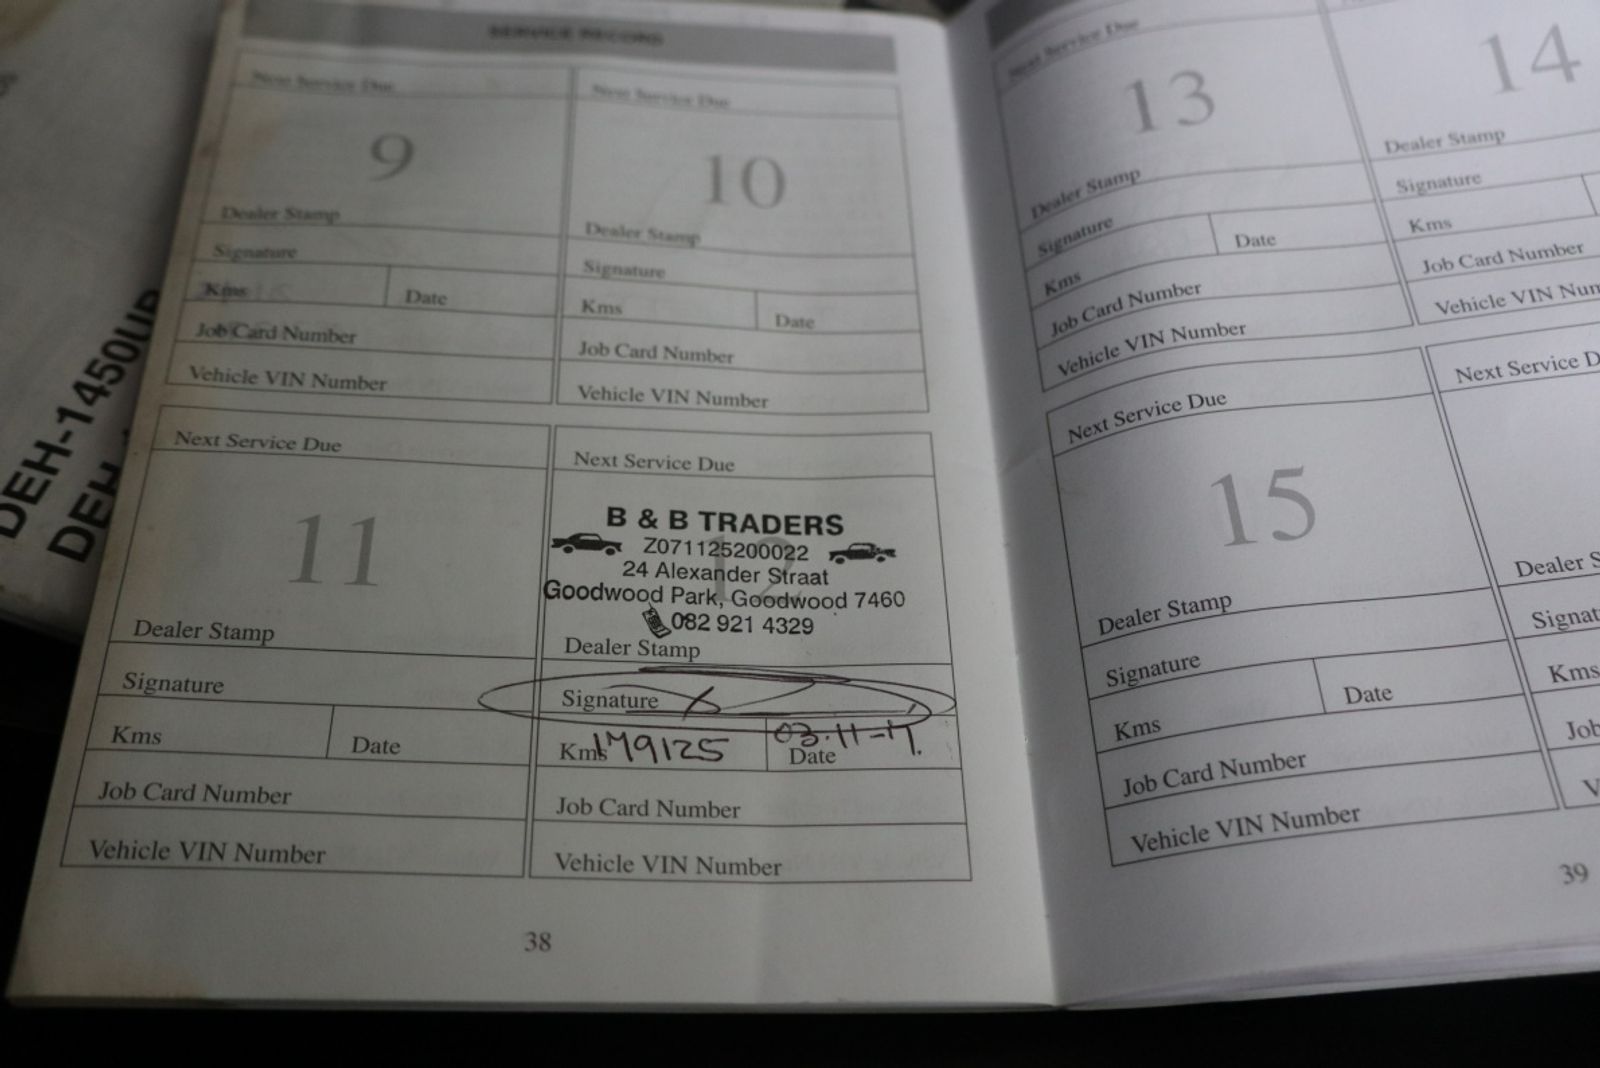 SERVICE RECORD
Next Service Due
9
Dealer Stamp
Signature
Kms Date
Job Card Number
Vehicle VIN Number
Next Service Due
10
Dealer Stamp
Signature
Kms Date
Job Card Number
Vehicle VIN Number
Next Service Due
11
Dealer Stamp
Signature
Kms Date
Job Card Number
Vehicle VIN Number
Next Service Due
12
B & B TRADERS
Z071125200022
24 Alexander Straat
Goodwood Park, Goodwood 7460
082 921 4329
Dealer Stamp
Signature
Kms 179125 Date 03-11-17.
Job Card Number
Vehicle VIN Number
38
Next Service Due
13
Dealer Stamp
Signature
Kms Date
Job Card Number
Vehicle VIN Number
14
Dealer Stamp
Signature
Kms
Job Card Number
Vehicle VIN Num
Next Service Due
15
Dealer Stamp
Signature
Kms Date
Job Card Number
Vehicle VIN Number
Next Service D
Dealer S
Signat
Kms
Job
V
39
DEH-1450UB
DEH-